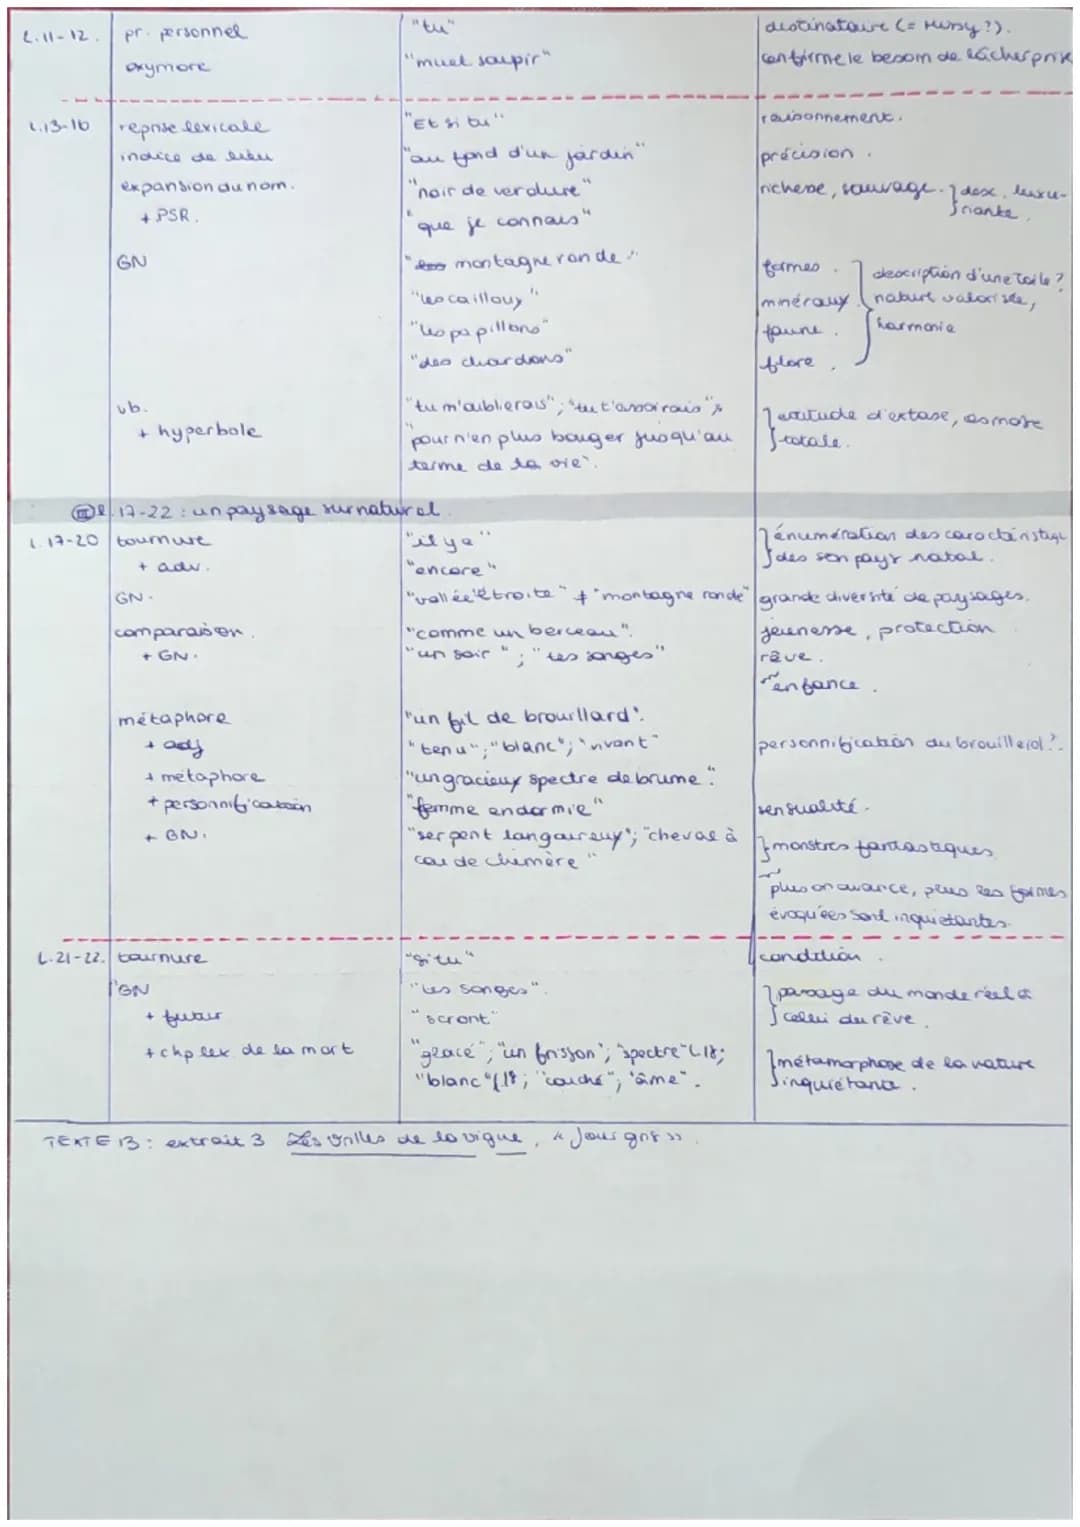 L.11-12. pr. personnel "tu" destinataire (= Missy?).
oxymore "muet soupir" confirme le besoin de lâcher prise
L.13-16 reprise lexicale "Et si tu" raisonnement.
indice de lieu "au fond d'un jardin" précision.
expansion du nom. "noir de verdure" richesse, sauvage. } desc. luxu-
+ PSR. "que je connais" riante.
GN "montagne ronde" formes.
"les cailloux" minéraux } description d'une toile?
"les papillons" faune. nature valorisée,
"des chardons" flore. harmonie
vb. "tu m'oublierais"; "tu t'assoirais"; } attitude d'extase, osmose
+ hyperbole "pour n'en plus bouger jusqu'au totale.
terme de la vie".
III l.17-22 : un paysage surnaturel.
L.17-20 tournure "il y a" } énumération des caractéristiques
+ adv. "encore" des son pays natal.
GN. "vallée étroite" ≠ "montagne ronde" grande diversité de paysages.
comparaison. "comme un berceau". jeunesse, protection
+ GN. "un soir"; "tes songes" rêve.
enfance.
métaphore "un fil de brouillard".
+ adj "tenu"; "blanc"; "vivant" personnification du brouillard?.
+ métaphore "un gracieux spectre de brume".
+ personnification "femme endormie" sensualité.
+ GN. "serpent langoureux"; "cheval à } monstres fantastiques
cou de chimère"
plus on avance, plus les formes
évoquées sont inquiétantes.
L.21-22. tournure "si tu" condition.
GN "tes songes". } passage du monde réel à
+ futur "seront" celui du rêve.
+ chp lex. de la mort "glacé"; "un frisson"; "spectre" L18; } métamorphose de la nature
"blanc" L18; "couché"; "âme". inquiétant.
TEXTE 13 : extrait 3 Les Vrilles de la vigne, « Jour gris ».